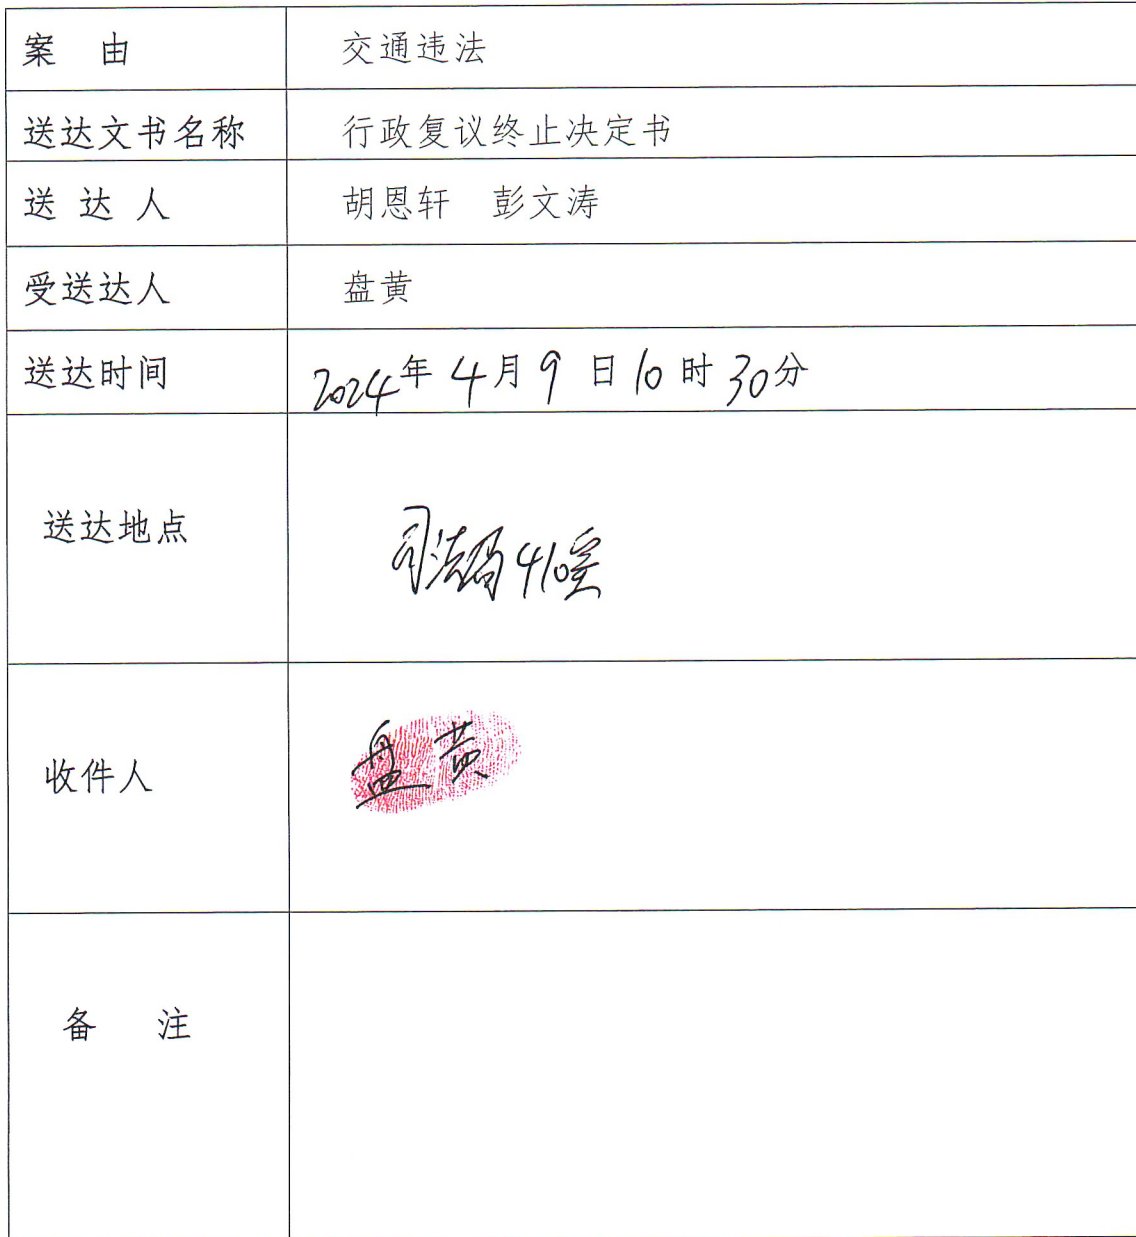 案 由 交通违法
送达文书名称 行政复议终止决定书
送 达 人 胡恩轩 彭文涛
受送达人 盘黄
送达时间 2024年 4月 9 日 10 时 30分
送达地点 司法局410室
收件人 盘黄
备 注